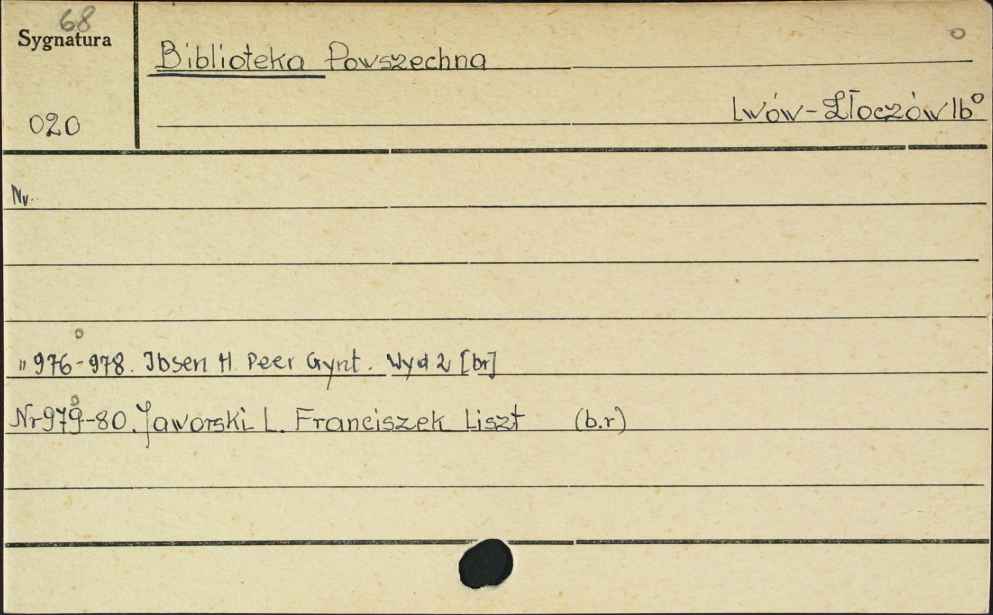 68
Sygnatura
020
Biblioteka Powszechna
Lwów-Złoczów 16°
Nr.
" 976-978. Ibsen H Peer Gynt. Wyd 2 [br]
Nr 979-80. Jaworski L. Franciszek Liszt (b.r)